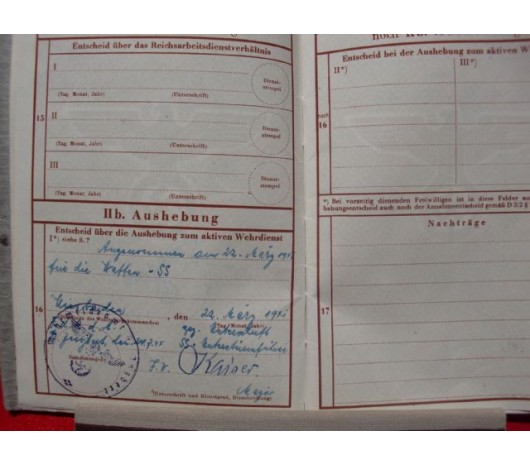 Entscheid über das Reichsarbeitsdienstverhältnis
I
Dienst-
stempel
(Tag, Monat, Jahr) (Unterschrift)
15
II
Dienst-
stempel
(Tag, Monat, Jahr) (Unterschrift)
III
Dienst-
stempel
(Tag, Monat, Jahr) (Unterschrift)
IIb. Aushebung
Entscheid über die Aushebung zum aktiven Wehrdienst
I*) siehe S. 7
Angenommen am 22. März
für die Waffen-SS
16
, den 22. März
(Tag, Monat, Jahr)
gez.
SS-
J. V. Kaiser
Major
*(Unterschrift und Dienstgrad, Dienststellung)
noch
Entscheid bei der Aushebung zum aktiven W
II*) III*)
noch
16
*) Bei vorzeitig dienenden Freiwilligen ist in diese Felder
hebungsentscheid auch noch der Annahmeentscheid gemäß D 3/2 §
Nachträge
17